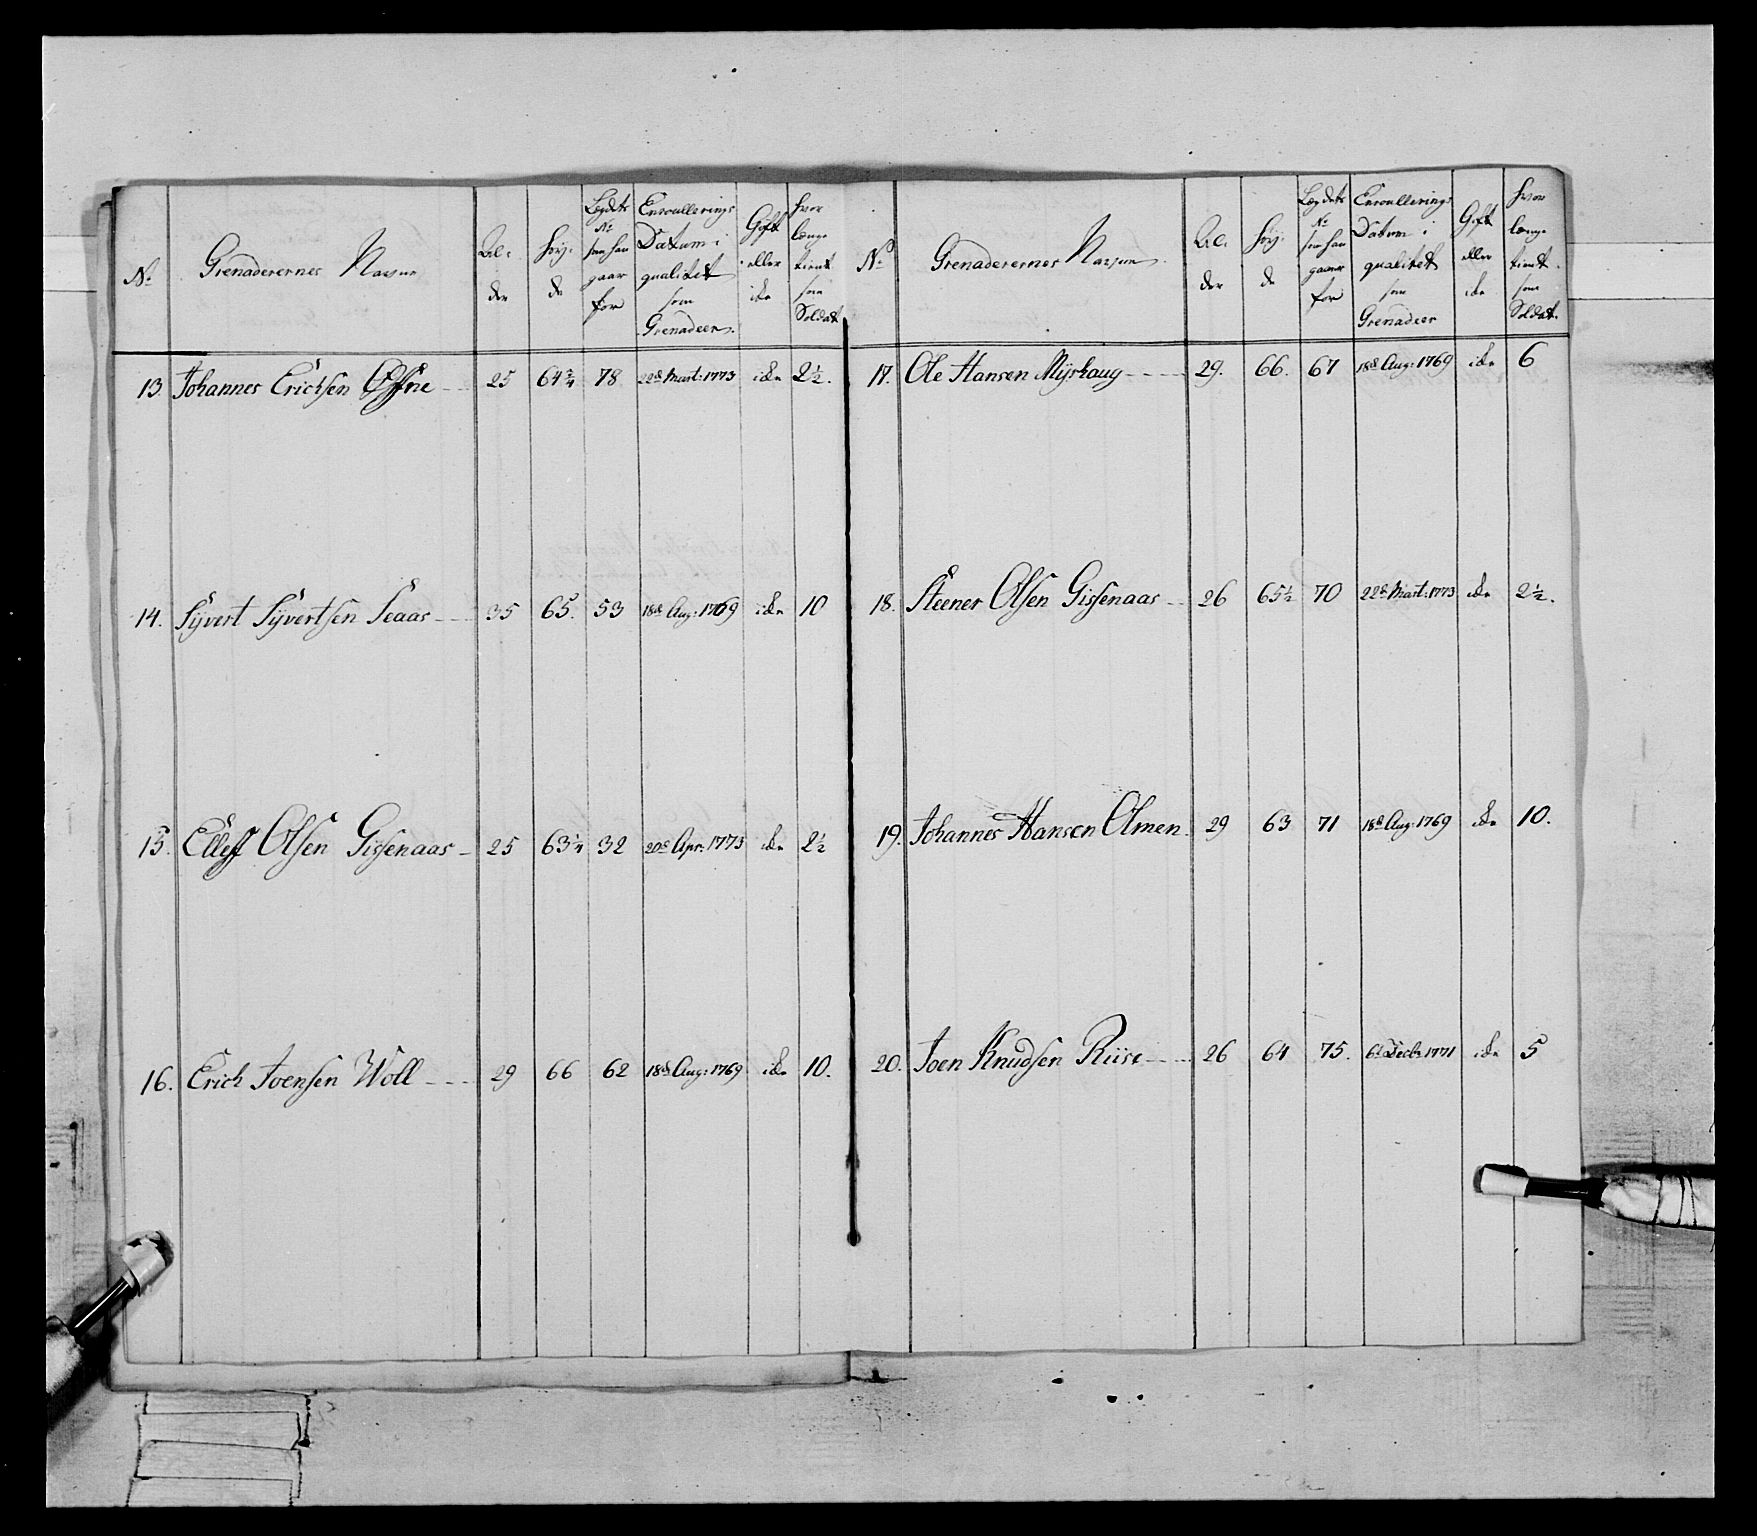 No
Grenaderernes Nafne
Al-
der
Høy-
de
Legdets
No
som han
gaar
for
Enroullerings
Datum i
qualitet
som
Grenadeer.
Gift
eller
icke
hvor
længe
tient
som
Soldat
13. Johannes Erichsen Øfsne 25 64 3/4 78 22d Mart: 1773 icke 2 1/2.
14. Syvert Syvertsen Seaas 35 65. 53 18d Aug: 1769 icke 10
15. Elleff Olsen Gissenaas 25 63 1/4 32 20d Apr: 1773 icke 2 1/2
16. Erich Joensen Woll 29 66 62 18d Aug: 1769 icke 10.
No
Grenaderernes Nafne
Al-
der
Høy-
de
Legdets
No
som han
gaaer
for
Enroullerings
Datum i
qualitet
som
Grenadeer
Gift
eller
icke
hvor
længe
tient
som
Soldat.
17. Ole Hansen Myrhaug 29. 66. 67 18d Aug: 1769 icke 6
18. Steener Olsen Gissenaas 26 65 1/2 70 22d Mart: 1773 icke 2 1/2.
19. Johannes Hansen Olmen 29 63 71 18d Aug: 1769 icke 10.
20. Joen Knudsen Riise 26 64 75. 6t Decbr 1771 icke 5